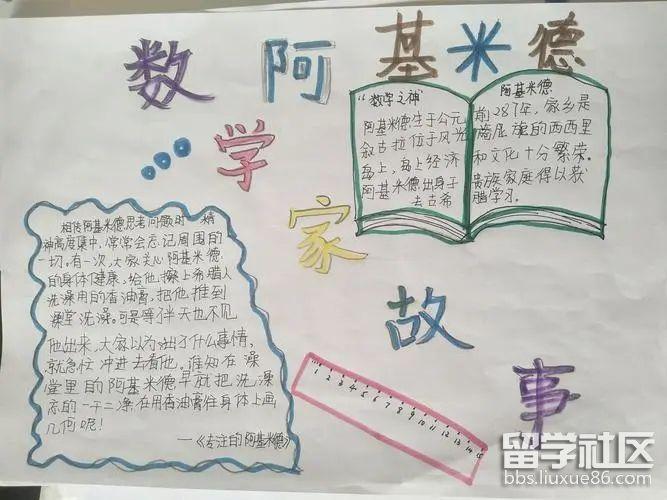 数学家故事
阿基米德
"数学之神"
阿基米德
阿基米德生于公元
前287年,家乡是
叙古拉位于风光
旖旎的西西里
岛上,岛上经济
和文化十分繁荣。
阿基米德出身于
贵族家庭得以
去古希
腊学习。
相传阿基米德思考问题时,精
神高度集中,常常会忘记周围的
一切,有一次,大家关心阿基米德
的身体健康,给他擦上希腊人
洗澡用的香油膏,把他推到
澡堂洗澡。可是等了半天也不见
他出来,大家以为出了什么事情,
就急忙冲进去看他。谁知在澡
堂里的阿基米德早就把洗澡
忘的一干二净,在用香油膏在身体上画
几何呢!
——《专注的阿基米德》
1 2 3 4 5 6 7 8 9 10 11 12 13 14 15
留学社区
bbs.liuxue86.com